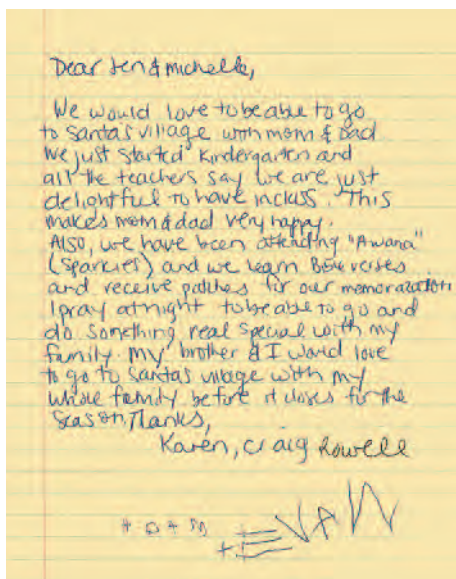 Dear Jen & Michelle,
We would love to be able to go
to Santa's Village with mom & Dad
We just started Kindergarten and
all the teachers say we are just
delightful to have in class. This
makes mom & dad very happy.
Also, we have been attending "Awana"
(Sparkies) and we learn Bible verses
and receive patches for our memorazation
I pray at night to be able to go and
do something real special with my
family. my brother & I would love
to go to Santa's village with my
whole family before it closes for the
season. Thanks,
Karen, Craig Rowell
EVAN